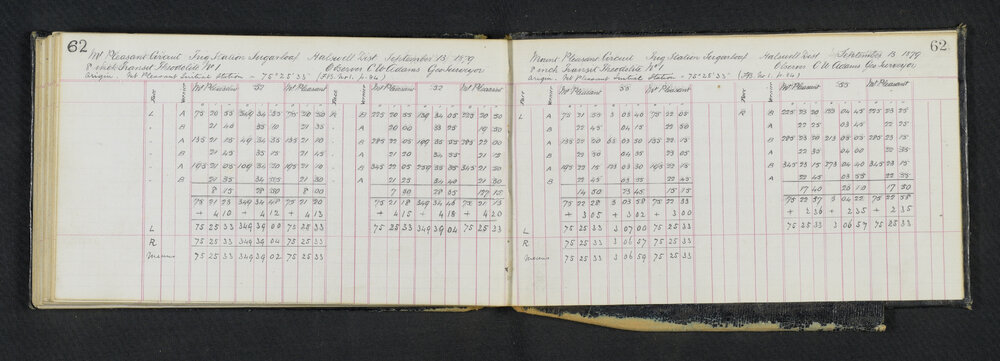 62
Mt Pleasant Circuit Trig Station Sugarloaf Halswell Dist September 13 1879
8 inch Transit Theodolite No 1 Observer C W Adams Geo Surveyor
Origin. Mt Pleasant Initial Station = 75° 25' 33" (F.B. No 1. p. 94)
Face Vernier Mt Pleasant 52 Mt Pleasant Face Vernier Mt Pleasant 52 Mt Pleasant
L A 75 20 55 349 34 35 75 20 30 R B 225 20 55 169 34 05 225 20 50
B 21 40 35 10 21 35 A 20 00 33 25 19 30
A 135 21 15 49 34 35 135 21 10 B 285 22 05 109 35 55 285 22 00
B 21 45 35 15 21 45 A 21 20 34 55 21 15
A 195 21 05 109 34 30 195 21 10 B 345 22 05 259 35 35 345 21 50
B 21 35 34 25 21 30 A 21 25 34 40 21 30
8 15 28 30 8 00 7 50 28 35 127 15
75 21 23 349 34 48 75 21 20 75 21 18 349 34 46 75 21 13
+ 4 10 + 4 12 + 4 13 + 4 15 + 4 18 + 4 20
L 75 25 33 349 39 00 75 25 33 75 25 33 349 39 04 75 25 33
R 75 25 33 349 39 04 75 25 33
Means 75 25 33 349 39 02 75 25 33
62
Mount Pleasant Circuit Trig Station Sugarloaf Halswell Dist September 13 1879
8 inch Transit Theodolite No 1 Observer C W Adams Geo Surveyor
Origin Mt Pleasant Initial Station = 75° 25' 33" (F.B. No 1. p. 94)
Face Vernier Mt Pleasant 55 Mt Pleasant Face Vernier Mt Pleasant 55 Mt Pleasant
L A 75 21 55 3 03 40 75 22 05 R B 225 23 20 153 04 45 225 23 15
B 22 45 04 15 22 50 A 22 25 03 45 22 25
A 135 22 00 63 03 30 135 22 05 B 285 23 20 213 05 05 285 23 15
B 22 50 04 35 22 05 A 22 35 04 00 22 35
A 195 22 15 123 03 30 195 22 15 B 345 23 15 273 04 40 345 23 15
B 22 45 03 55 22 45 A 22 45 03 55 22 35
14 50 23 45 15 15 17 40 26 10 17 30
75 22 28 3 03 58 75 22 33 75 22 57 3 04 22 75 22 58
+ 3 05 + 3 02 + 3 00 + 2 36 + 2 35 + 2 35
L 75 25 33 3 07 00 75 25 33 75 25 33 3 06 57 75 25 33
R 75 25 33 3 06 57 75 25 33
Means 75 25 33 3 06 59 75 25 33